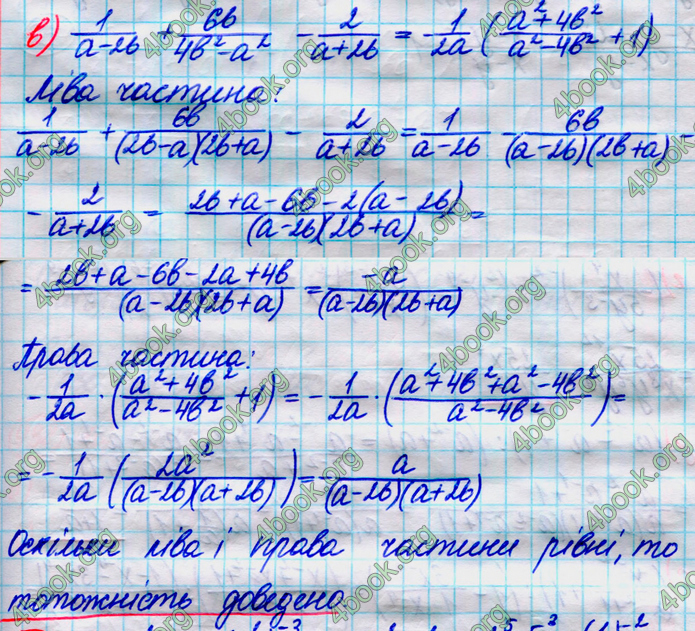 в) 1/(a-2b) + 6b/(4b²-a²) - 2/(a+2b) = -1/2a (a²+4b²/(a²-4b²) + 1)
Ліва частина:
1/(a-2b) + 6b/((2b-a)(2b+a)) - 2/(a+2b) = 1/(a-2b) - 6b/((a-2b)(2b+a)) -
- 2/(a+2b) = (2b+a-6b-2(a-2b))/((a-2b)(2b+a)) =
= (2b+a-6b-2a+4b)/((a-2b)(2b+a)) = -a/((a-2b)(2b+a))
Права частина:
-1/2a · ((a²+4b²)/(a²-4b²) + 1) = -1/2a · ((a²+4b²+a²-4b²)/(a²-4b²)) =
= -1/2a (2a²/((a-2b)(a+2b))) = a/((a-2b)(a+2b))
Оскільки ліва і права частини рівні, то
тотожність доведено.
4book.org